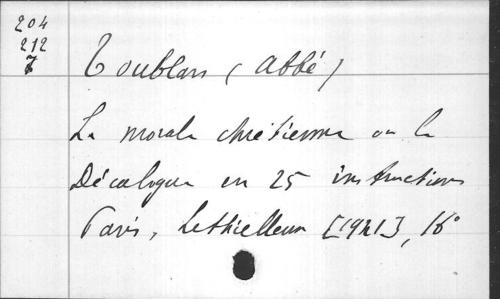 204
212
7
Toublan (abbé)
La morale chrétienne ou le
Décalogue en 25 instructions
Paris, Lethielleux [1921], 16°